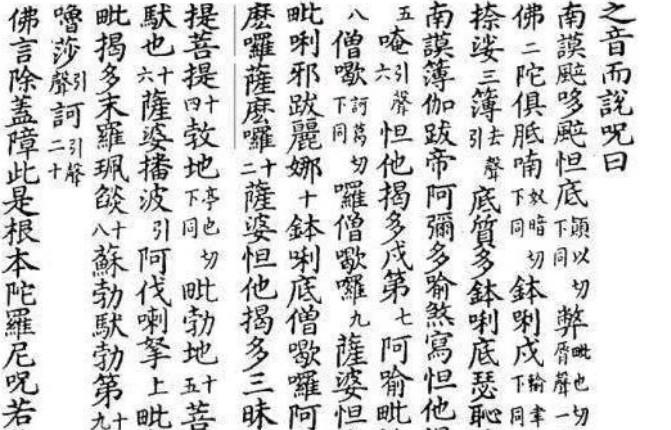 之音而說呪曰
南謨颰哆颰怛底下同 頴以切 弊毗也切 脣聲一
佛二陀俱胝喃下同 奴暗切 鉢唎戍下同 輸聿
捺娑三簿引去聲底質多鉢唎底瑟恥
南謨簿伽跋帝阿彌多喻煞寫怛他
五唵六 引聲怛他揭多戍第七阿喻毗
八僧歇下同 訶葛切囉僧歇囉九薩婆怛
毗唎邪跋麗娜十鉢唎底僧歇囉阿
麼囉薩麼囉十二薩婆怛他揭多三昧
提菩提十四敦地下同 亭也切毗勃地十五菩
馱也十六薩婆播波引阿伐喇拏上毗
毗揭多末羅珮燄十八蘇勃馱勃第十九
嚕莎引聲訶引聲二十
佛言除蓋障此是根本陀羅尼呪若